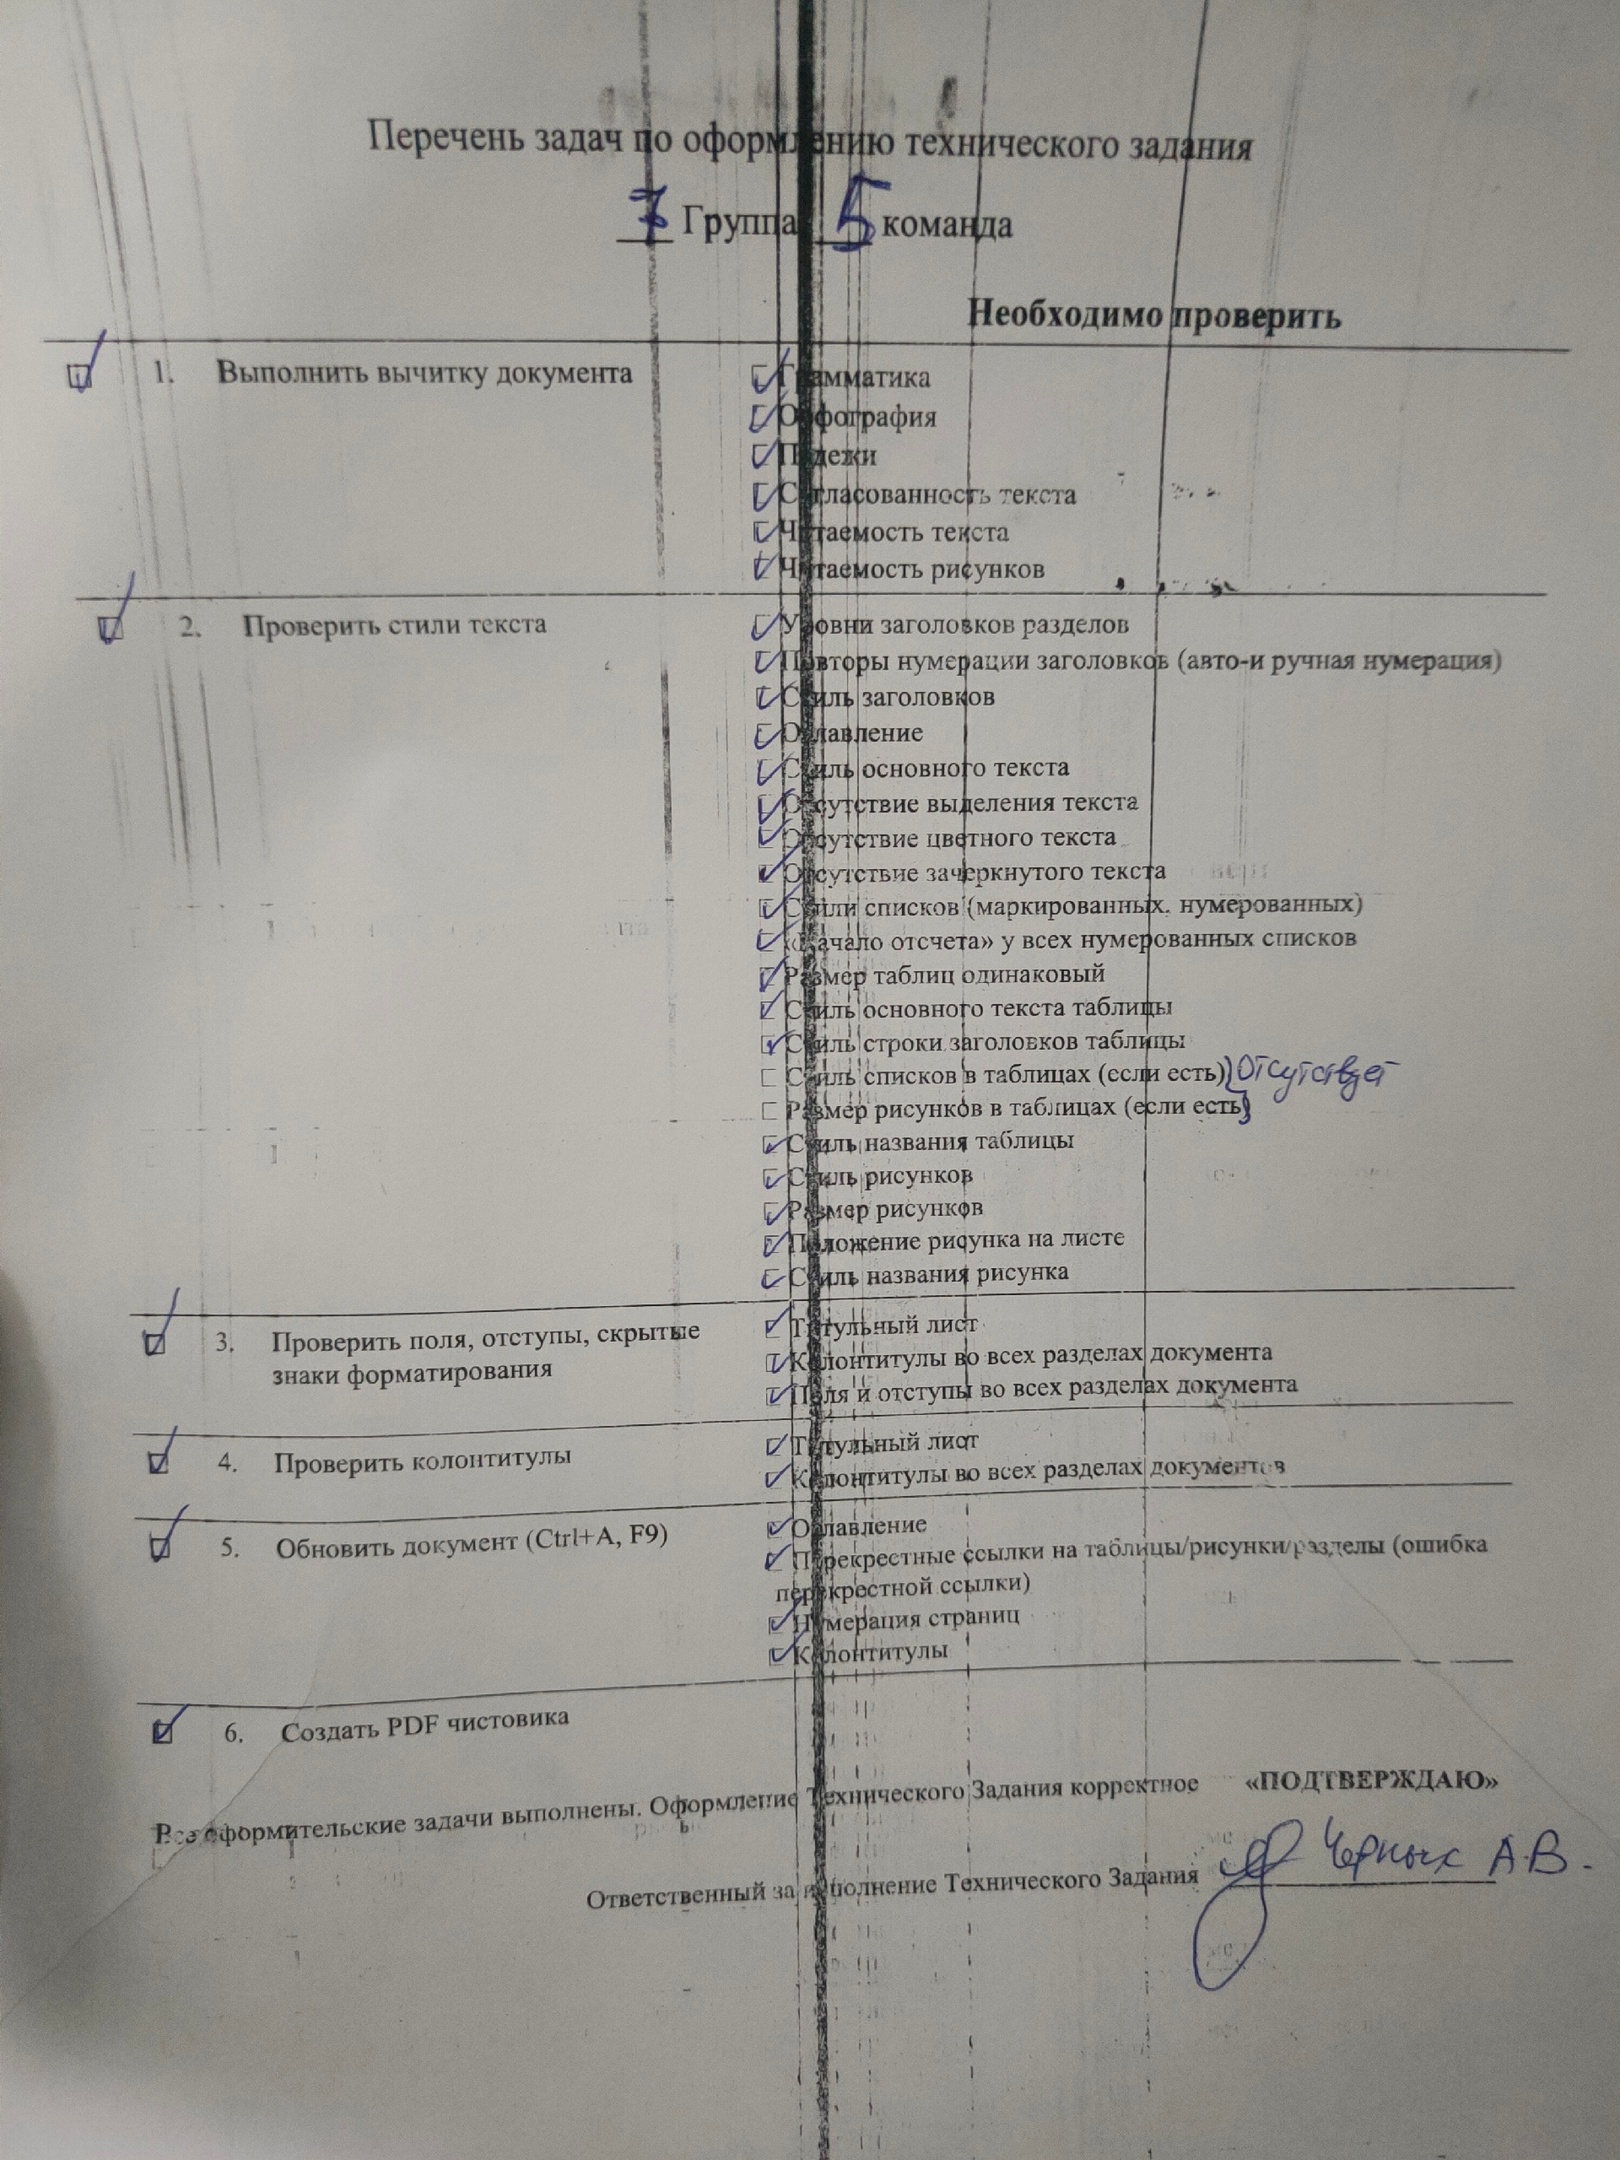 Перечень задач по оформлению технического задания
7 Группа 5 команда
Необходимо проверить
1. Выполнить вычитку документа
Грамматика
Орфография
Падежи
Согласованность текста
Читаемость текста
Читаемость рисунков
2. Проверить стили текста
Уровни заголовков разделов
Повторы нумерации заголовков (авто-и ручная нумерация)
Стиль заголовков
Оглавление
Стиль основного текста
Отсутствие выделения текста
Отсутствие цветного текста
Отсутствие зачеркнутого текста
Стили списков (маркированных, нумерованных)
«Начало отсчета» у всех нумерованных списков
Размер таблиц одинаковый
Стиль основного текста таблицы
Стиль строки заголовков таблицы
Стиль списков в таблицах (если есть) отсутствует
Размер рисунков в таблицах (если есть)
Стиль названия таблицы
Стиль рисунков
Размер рисунков
Положение рисунка на листе
Стиль названия рисунка
3. Проверить поля, отступы, скрытые
знаки форматирования
Титульный лист
Колонтитулы во всех разделах документа
Поля и отступы во всех разделах документа
4. Проверить колонтитулы
Титульный лист
Колонтитулы во всех разделах документов
5. Обновить документ (Ctrl+A, F9)
Оглавление
Перекрестные ссылки на таблицы/рисунки/разделы (ошибка
перекрестной ссылки)
Нумерация страниц
Колонтитулы
6. Создать PDF чистовика
Все оформительские задачи выполнены. Оформление Технического Задания корректное «ПОДТВЕРЖДАЮ»
Ответственный за исполнение Технического Задания Черных А.В.